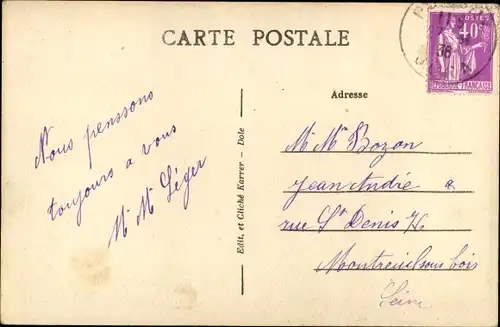 CARTE POSTALE
POSTES
40c
REPUBLIQUE FRANÇAISE
36
Adresse
Nous penssons
toujours a vous
M Mr Léger
Edit. et Cliché Karrer - Dole
M Mr Bozon
Jean André a
rue St Denis
Montreuil sous bois
Seine